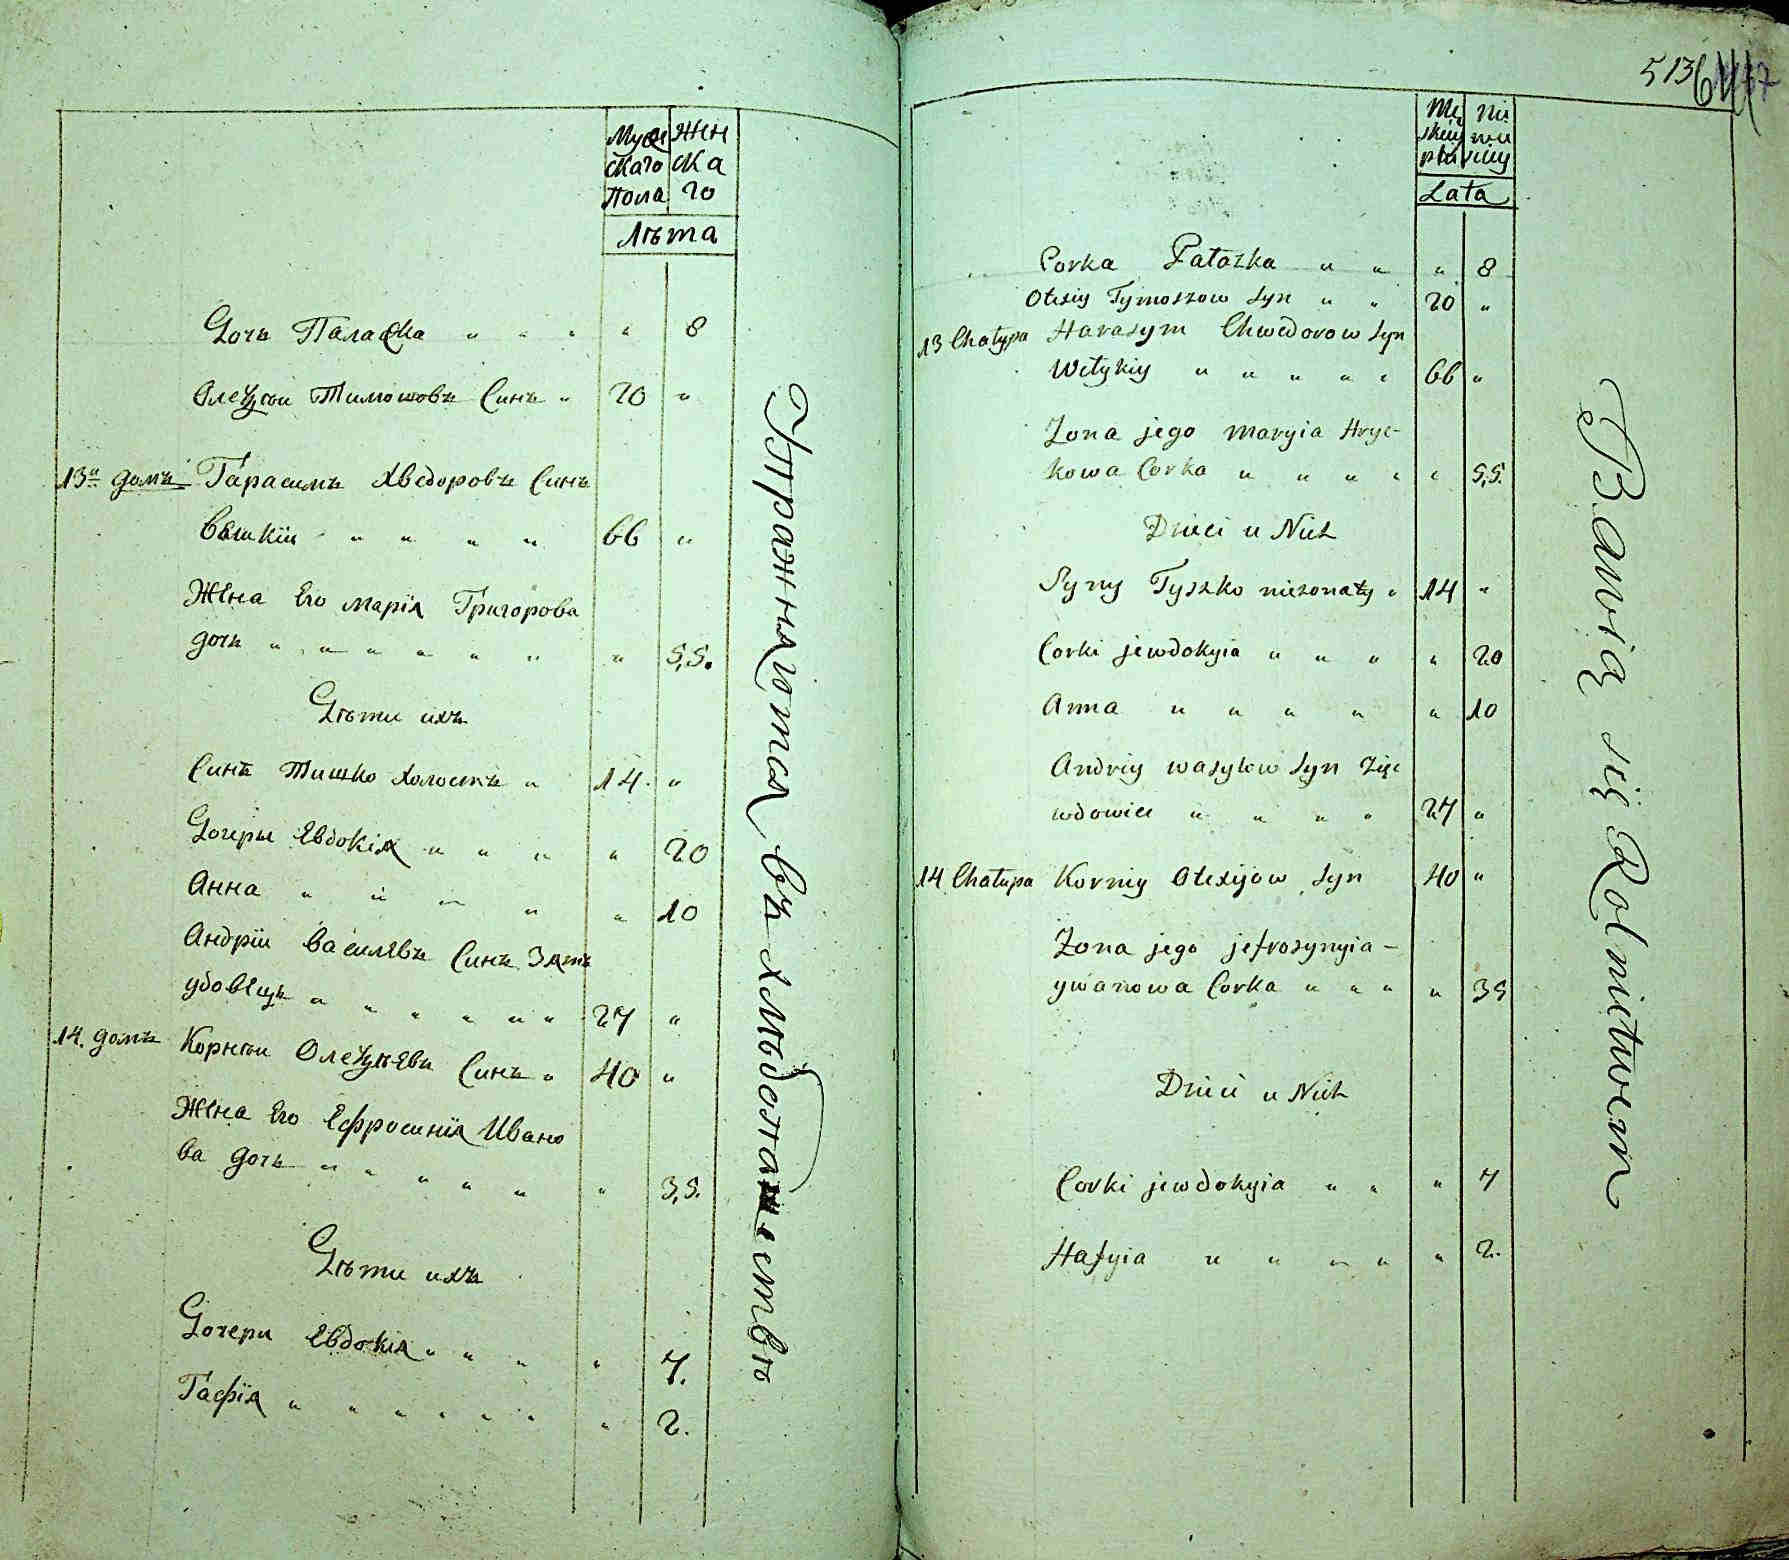 Мужскаго Пола
Женскаго
Лѣта
Дочь Палажка " " " " 8
Олеѯѣй Тимошовъ Синъ " 20 "
13й домъ Гарасимъ Хведоровъ Синъ
Великій " " " " 66 "
Жена Его Марія Григорова
дочь " " " " " " " 55.
Дѣти ихъ
Синъ Тишко холостъ " 14. "
Дочеры Евдокія " " " " 20
Анна " " " " " 10
Андрій Василевъ Синъ Зять
удовецъ " " " " " " 27 "
14. домъ Корнѣй Олеѯѣевъ Синъ " 40 "
Жена Его Ефросинія Ивано
ва дочь " " " " " " 35.
Дѣти ихъ
Дочери Евдокія " " " " 7.
Гафія " " " " " " " 2.
Упражняются въ хлѣбопашествѣ
513
Lata
Corka Pałażka " " " 8
Olexiy Tymoszow Syn " " 20 "
13 Chałupa Harasym Chwedorow Syn
Wełykiy " " " " " 66 "
Zona jego Maryia Hryc-
kowa Corka " " " " " 55.
Dzieci u Nich
Syny Tyszko nieżonaty " 14 "
Corki jewdokyia " " " " 20
Anna " " " " " 10
Andriy wasylow Syn Zięc
wdowiec " " " " 27 "
14 Chałupa Korniy Olexijow Syn 40 "
Zona jego jefrosynyia -
ywanowa Corka " " " " 35
Dzieci u Nich
Corki jewdokyia " " " 7
Hafyia " " " " " 2.
Bawią się Rolnictwem